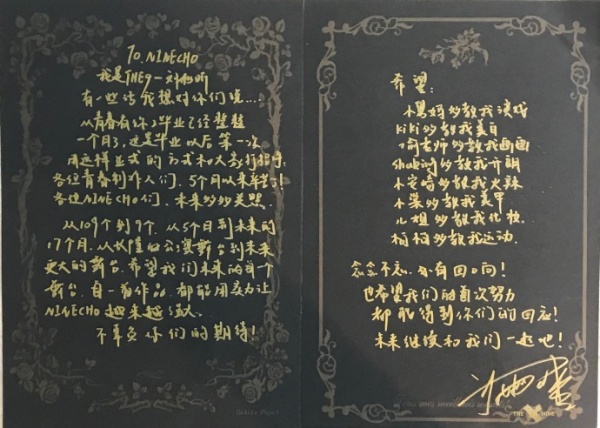 To. NINECHO
我是THE9-刘雨昕
有一些话我想对你们说...
从青春有你2毕业已经整整
一个月了,这是毕业以后第一次
用这样正式的方式和大家打招呼,
各位青春制作人们,5个月以来辛苦了
各位NINECHO们,未来多多关照
从109个到9个,从5个月到未来的
17个月,从长隆的公演舞台到未来
更大的舞台,希望我们未来的每个
舞台,每一首作品,都能用实力让
NINECHO越来越强大
不辜负你们的期待!
希望:
教我演戏
Kiki多教我美白
喻老师多教我画画
Shaking多教我开朗
小安崎多教我火辣
小棠多教我美甲
儿姐多教我化妆
教我运动
念念不忘,必有回响!
也希望我们的每次努力
都能得到你们的回应!
未来继续和我们一起吧!
THE NINE